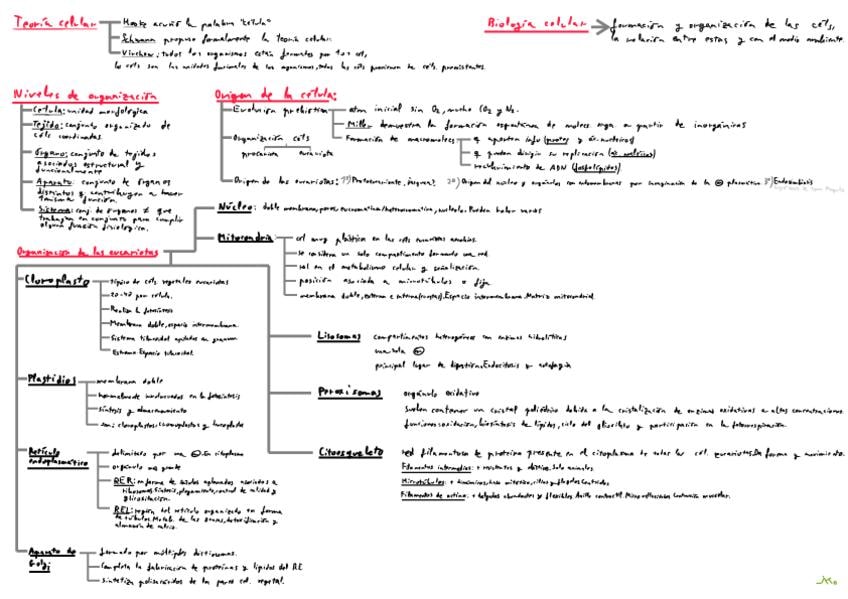 Teoría celular
Hooke acuñó la palabra "célula"
Schwann propuso formalmente la teoría celular.
Virchow: todos los organismos están formados por 1 o + céls,
las céls son las unidades funcionales de los organismos, todas las céls provienen de céls. preexistentes.
Biología celular
formación y organización de las céls,
la relación entre estas y con el medio ambiente.
Niveles de organización
Célula: unidad morfológica
Tejido: conjunto organizado de
céls coordinadas.
Órgano: conjunto de tejidos
asociados estructural y
funcionalmente
Aparato: conjunto de órganos
distintos q contribuyen a hacer
misma función.
Sistema: conj. de órganos ≠ que
trabajan en conjunto para cumplir
alguna función fisiológica.
Origen de la célula:
Evolución prebiótica
atm inicial sin O2, mucho CO2 y N2.
Miller demuestra la formación espontánea de molecs orga. a partir de inorgánicas
Formación de macromolecs
q aportan info (protes y ác. nucleicos)
q puedan dirigir su replicación (ác. nucleicos)
recubrimiento de ADN (fosfolípidos)
Organización céls
procariota eucariota
Origen de las eucariotas: 1º)
2º) Origen del núcleo y orgánulos con endomembranas por invaginación de la plasmática 3º) Endosimbiosis
Organización de las eucariotas
Núcleo: doble membrana, poros, eucromatina/heterocromatina, nucleolo. Pueden haber varios
Mitocondria
org muy plástico en las céls eucariotas aerobias.
se considera un solo compartimento formando una red.
rol en el metabolismo celular y señalización.
posición asociada a microtúbulos o fija
membrana doble, externa e interna (crestas). Espacio intermembrana. Matriz mitocondrial.
Cloroplasto
típico de céls vegetales eucariotas
20-40 por célula.
Realiza la fotosíntesis
Membrana doble, espacio intermembrana.
Sistema tilacoidal apilados en granum
Estroma. Espacio tilacoidal.
Plastidios
membrana doble
normalmente involucrados en la fotosíntesis
síntesis y almacenamiento
son: cloroplastos, cromoplastos y leucoplastos
Retículo
endoplasmático
delimitado por una En citoplasma
orgánulo más grande
RER: en forma de sáculos aplanados asociados a
ribosomas. Síntesis, plegamiento, control de calidad y
glicosilación.
REL: región del retículo organizado en forma
de túbulos. Metab. de las grasas, detoxificación y
almacén de calcio.
Aparato de
Golgi
formado por múltiples dictiosomas.
Completa la fabricación de proteínas y lípidos del RE
sintetiza polisacáridos de la pared cel. vegetal.
Lisosomas
compartimentos heterogéneos con enzimas hidrolíticas
una sola
principal lugar de digestión. Endocitosis y autofagia
Peroxisomas
orgánulo oxidativo
Suelen contener un cristal poliédrico debido a la cristalización de enzimas oxidativas a altas concentraciones
funciones: oxidación, biosíntesis de lípidos, ciclo del glioxilato y participación en la fotorrespiración.
Citoesqueleto
red filamentosa de proteína presente en el citoplasma de todas las cél. eucariotas. Da forma y movimiento.
Filamentos intermedios: + resistentes y elásticos. Solo animales.
Microtúbulos: + dinámicos, huso mitótico, cilios y flagelos. Centriolos.
Filamentos de actina: + delgados abundantes y flexibles. Anillo contráctil. Microvellosidades. Contracción muscular.